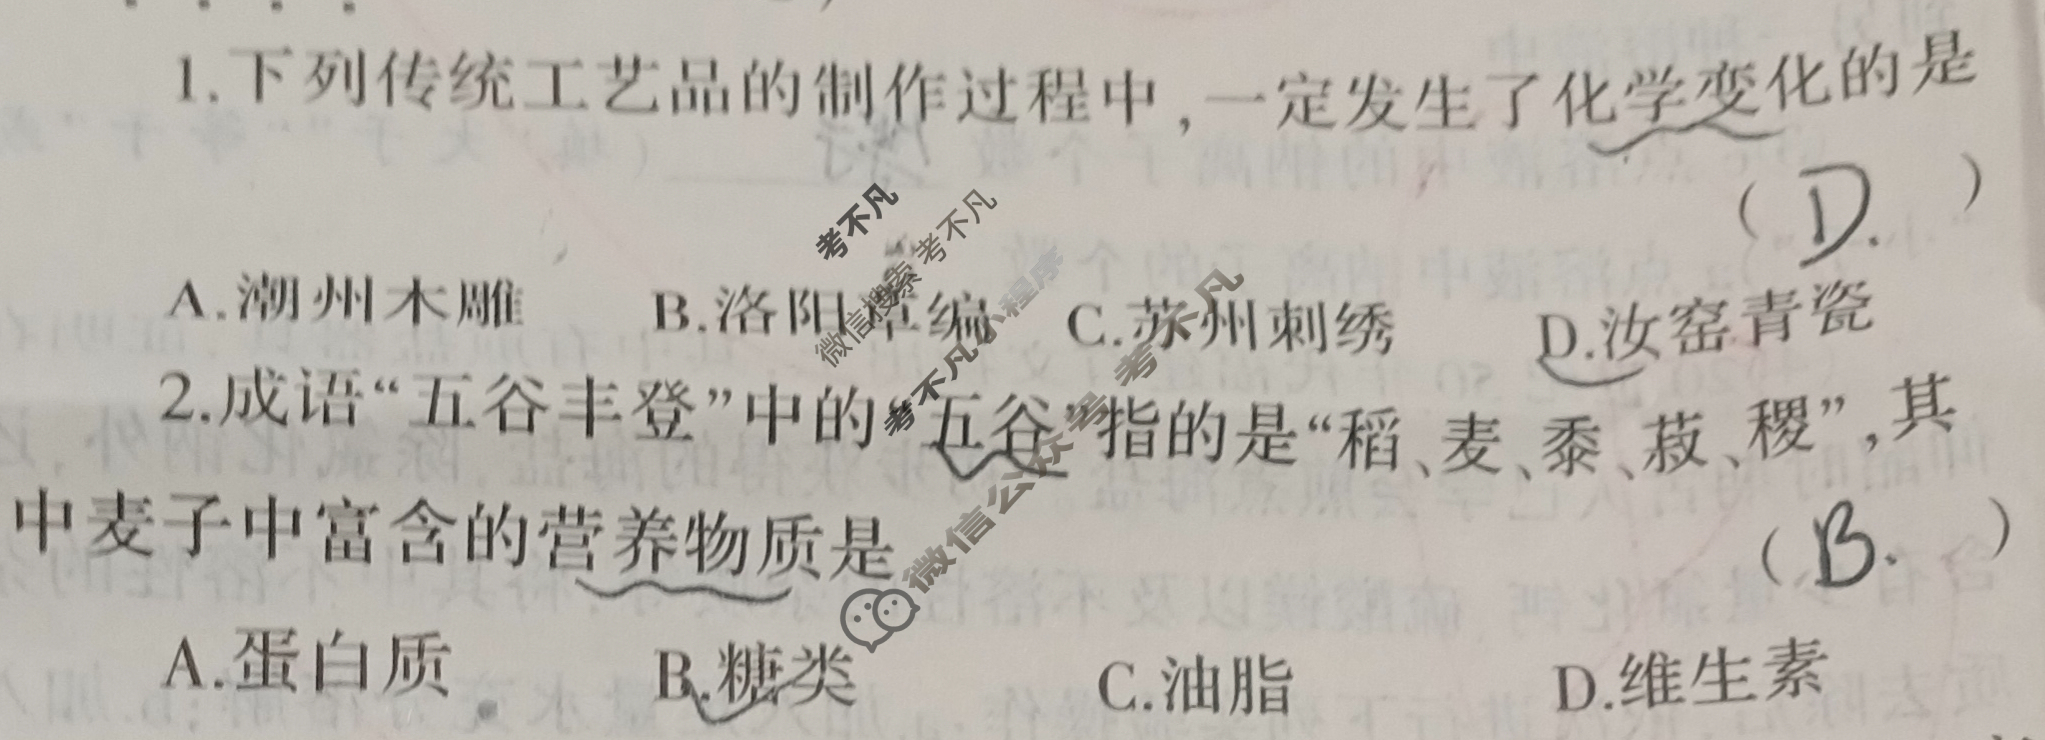 1.下列传统工艺品的制作过程中,一定发生了化学变化的是
( D. )
A.潮州木雕 B.洛阳草编 C.苏州刺绣 D.汝窑青瓷
2.成语“五谷丰登”中的“五谷”指的是“稻、麦、黍、菽、稷”,其
中麦子中富含的营养物质是
( B. )
A.蛋白质 B.糖类 C.油脂 D.维生素
考不凡
微信搜索 考不凡
考不凡小程序
微信公众号 考不凡